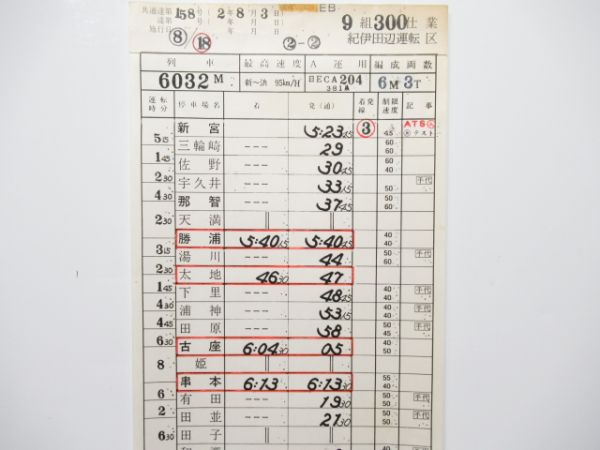 共通達第158号 (2年8月3日)
達第 号 ( 年 月 日)
施行日 ⑧/⑱ ②-②
EB
9組300仕業
紀伊田辺運転区
列車 最高速度 A運用 編成両数
6032M 新〜洪 95km/H BECA204 381A 6M3T
運転時分 停車場名 着 発(通) 着発線 制限速度 記事
新宮 5:23 45 ③ 45 ATS テスト
5 15 三輪崎 --- 29 60 60
1 45 佐野 --- 30 45 60 40
2 30 宇久井 --- 33 15 50 千代
4 30 那智 --- 37 45 50
天満 ‖ ‖
2 30 勝浦 5:40 15 5:40 45 40 40
3 15 湯川 --- 44 50 60 千代
2 30 太地 46 30 47
1 45 下里 --- 48 45 40 40 千代
4 30 浦神 --- 53 15 40 50 千代
4 45 田原 --- 58 45 50 千代
6 30 古座 6:04 30 05 40 50
姫 ‖ ‖
8 串本 6:13 6:13 30 55 40
6 有田 --- 19 30 50 50 千代
2 田並 --- 21 30 50 40 千代
田子 ‖ ‖
6 30